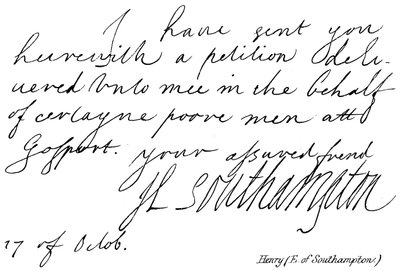 I have sent you
heerewith a petition deli-
uered vnto mee in the behalf
of certayne poore men att
Gosport. your assured frend
H Southampton
17 of Octob.
Henry (E. of Southampton.)